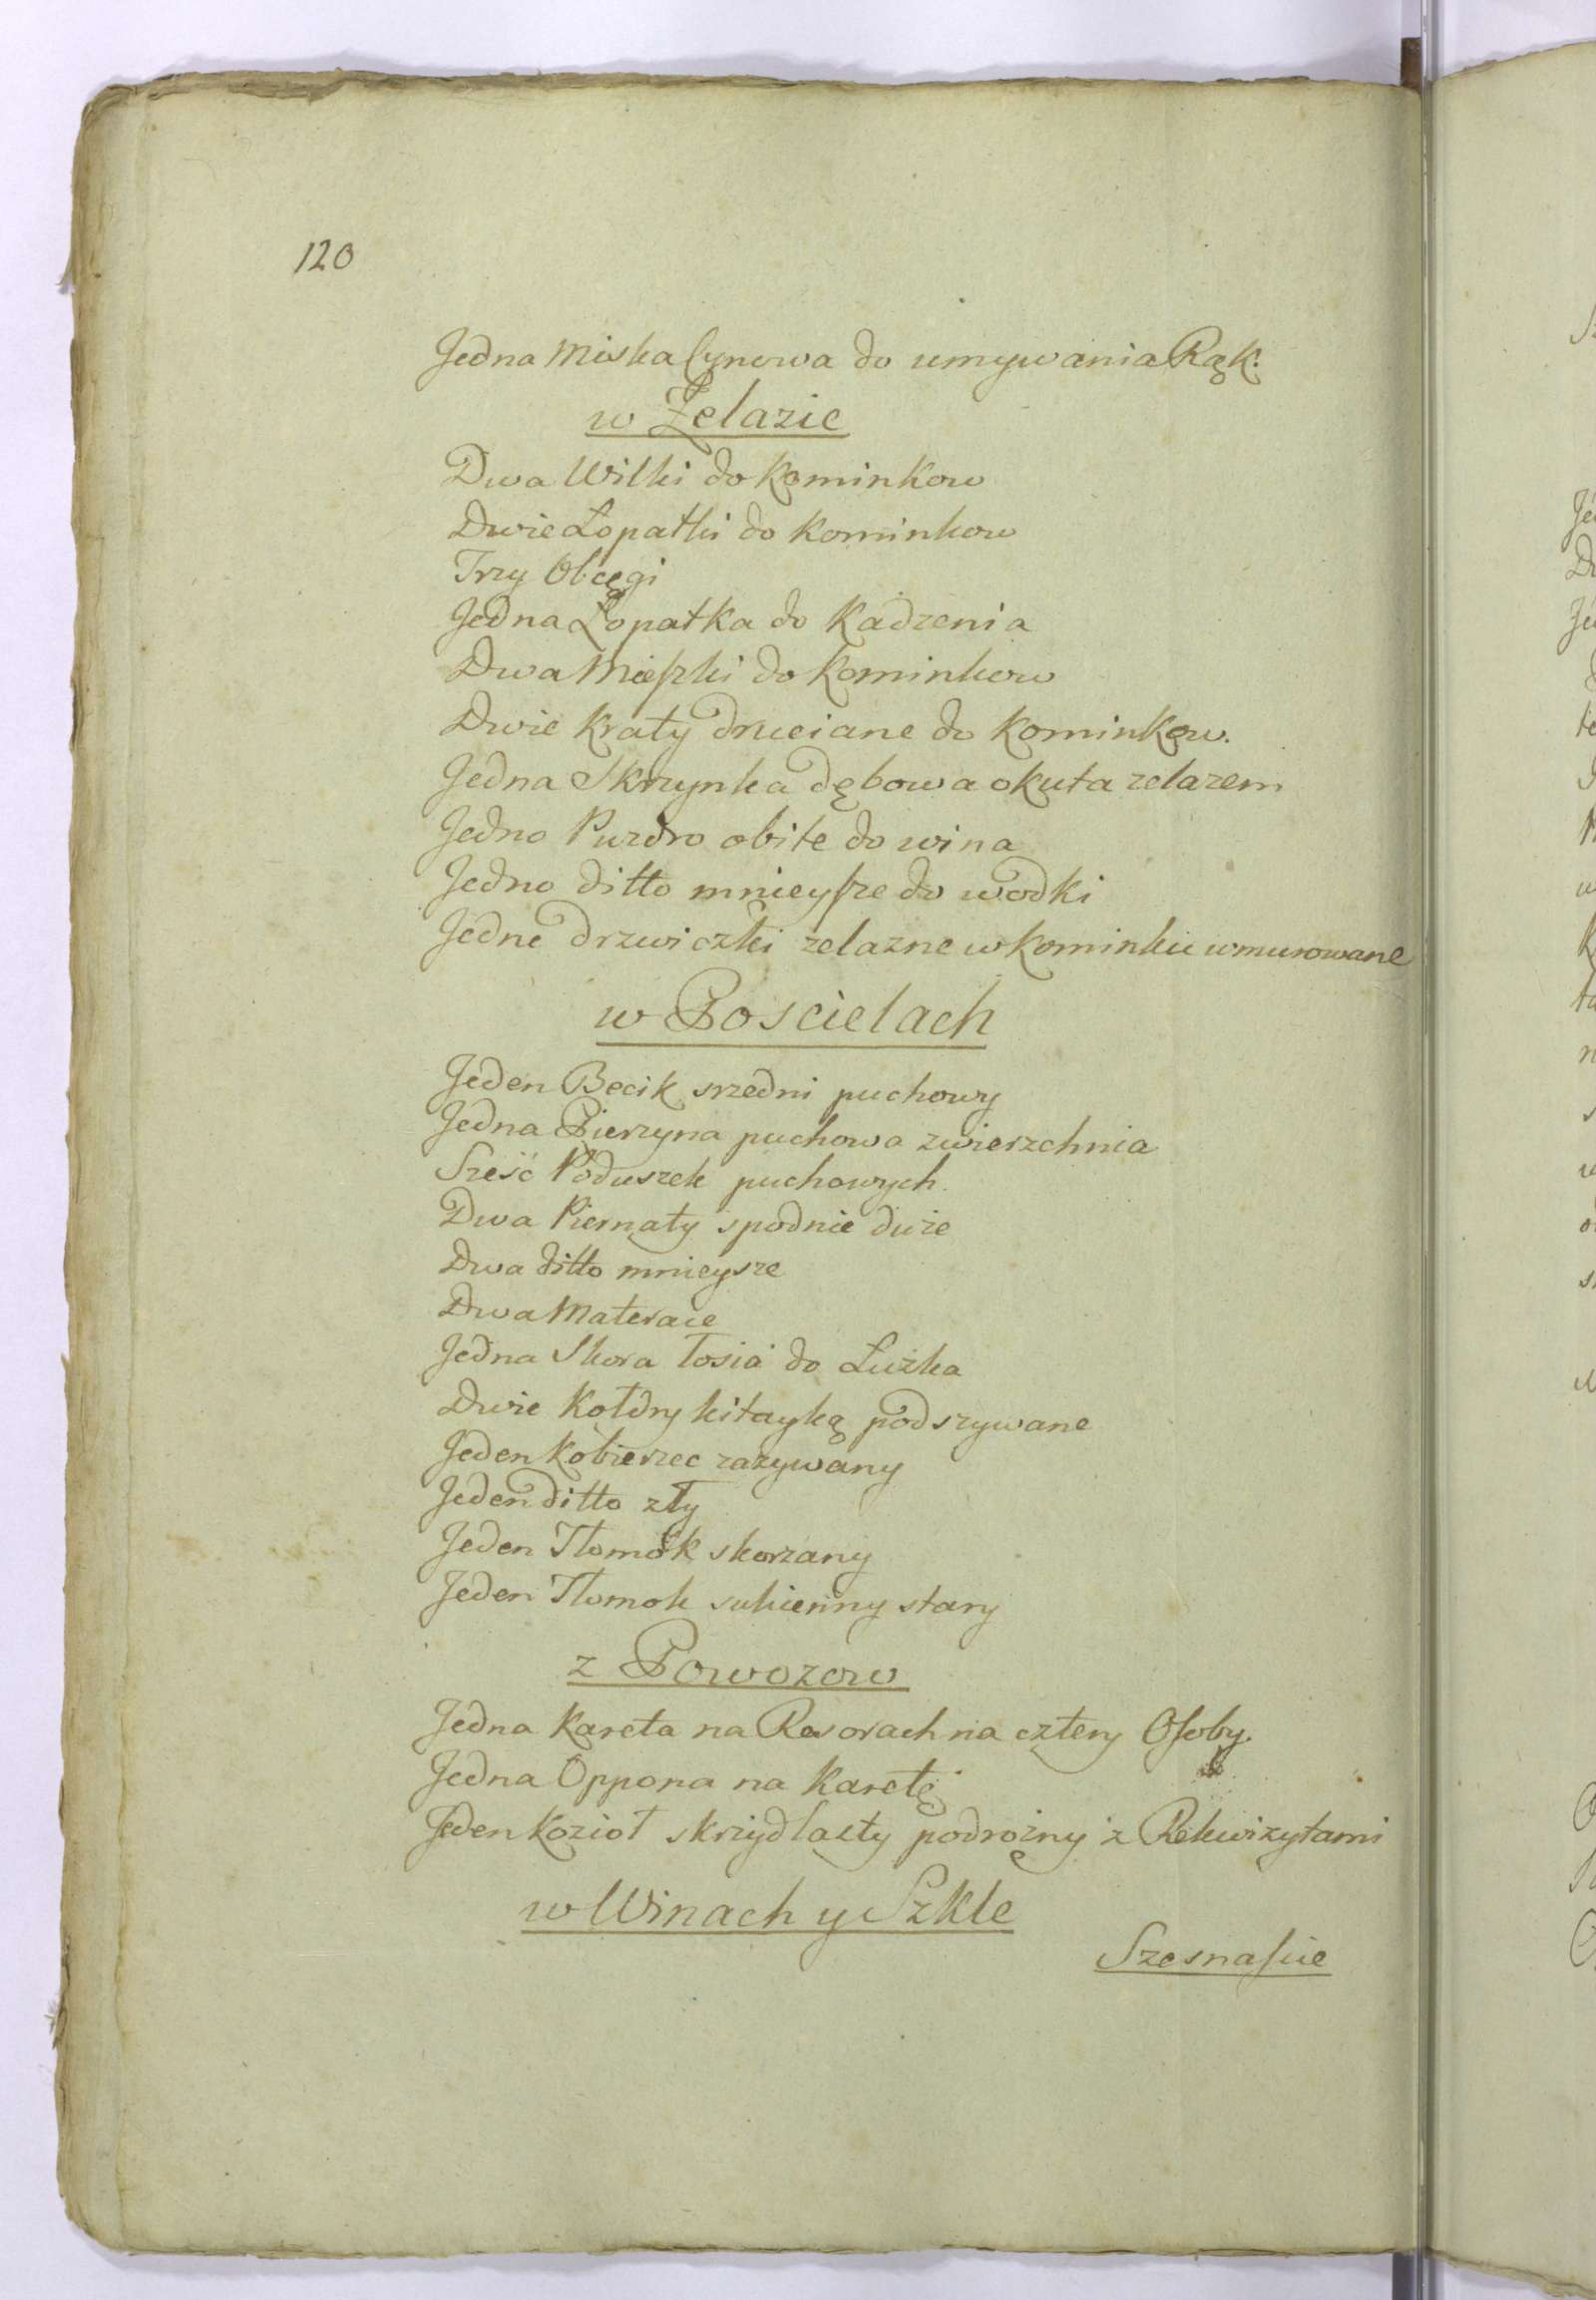 120
Jedna Miska Cynowa do umywania Rąk.
w Zelazie
Dwa Wilki do Kominkow
Dwie Łopatki do Kominkow
Trzy Obcęgi
Jedna Łopatka do Kadzenia
Dwa Mieſzki do Kominkow
Dwie Kraty druciane do Kominkow.
Jedna Skrzynka dębowa okuta zelazem
Jedno Puzdro obite do wina
Jedno ditto mnieyſze do wodki
Jedne drzwiczki zelazne w Kominku wmurowane
w Poscielach
Jeden Becik srzedni puchowy
Jedna Pierzyna puchowa zwierzchnia
Sześć Poduszek puchowych
Dwa Piernaty spodnie duże
Dwa ditto mnieysze
Dwa Materace
Jedna Skora łosia do Łużka
Dwie Kołdry kitayką podszywane
Jeden Kobierzec zażywany
Jeden ditto zły
Jeden Tłomok skorzany
Jeden Tłomok sukienny stary
z Powozow
Jedna Kareta na Resorach na cztery Oſoby.
Jedna Oppona na Karetę
Jeden Kozioł skrzydlasty podrożny z Rekwizytami
w Winach y Szkle
Szesnaſcie